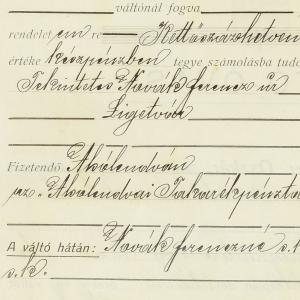 váltónál fogva
rendelet em re Kettőszázhetven
értéke készpénzben tegye számolásba tudó
Tekintetes Novák Ferencz úr
Ligetvár
Fizetendő Alsólendván
az Alsólendvai Takarékpénztá
A váltó hátán: Novák Ferenczné s.k.
s.k.